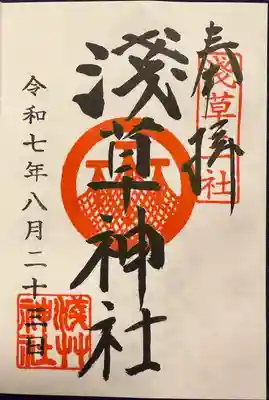 奉拝
淺草三社
淺草神社
令和七年八月二十三日
淺草神社